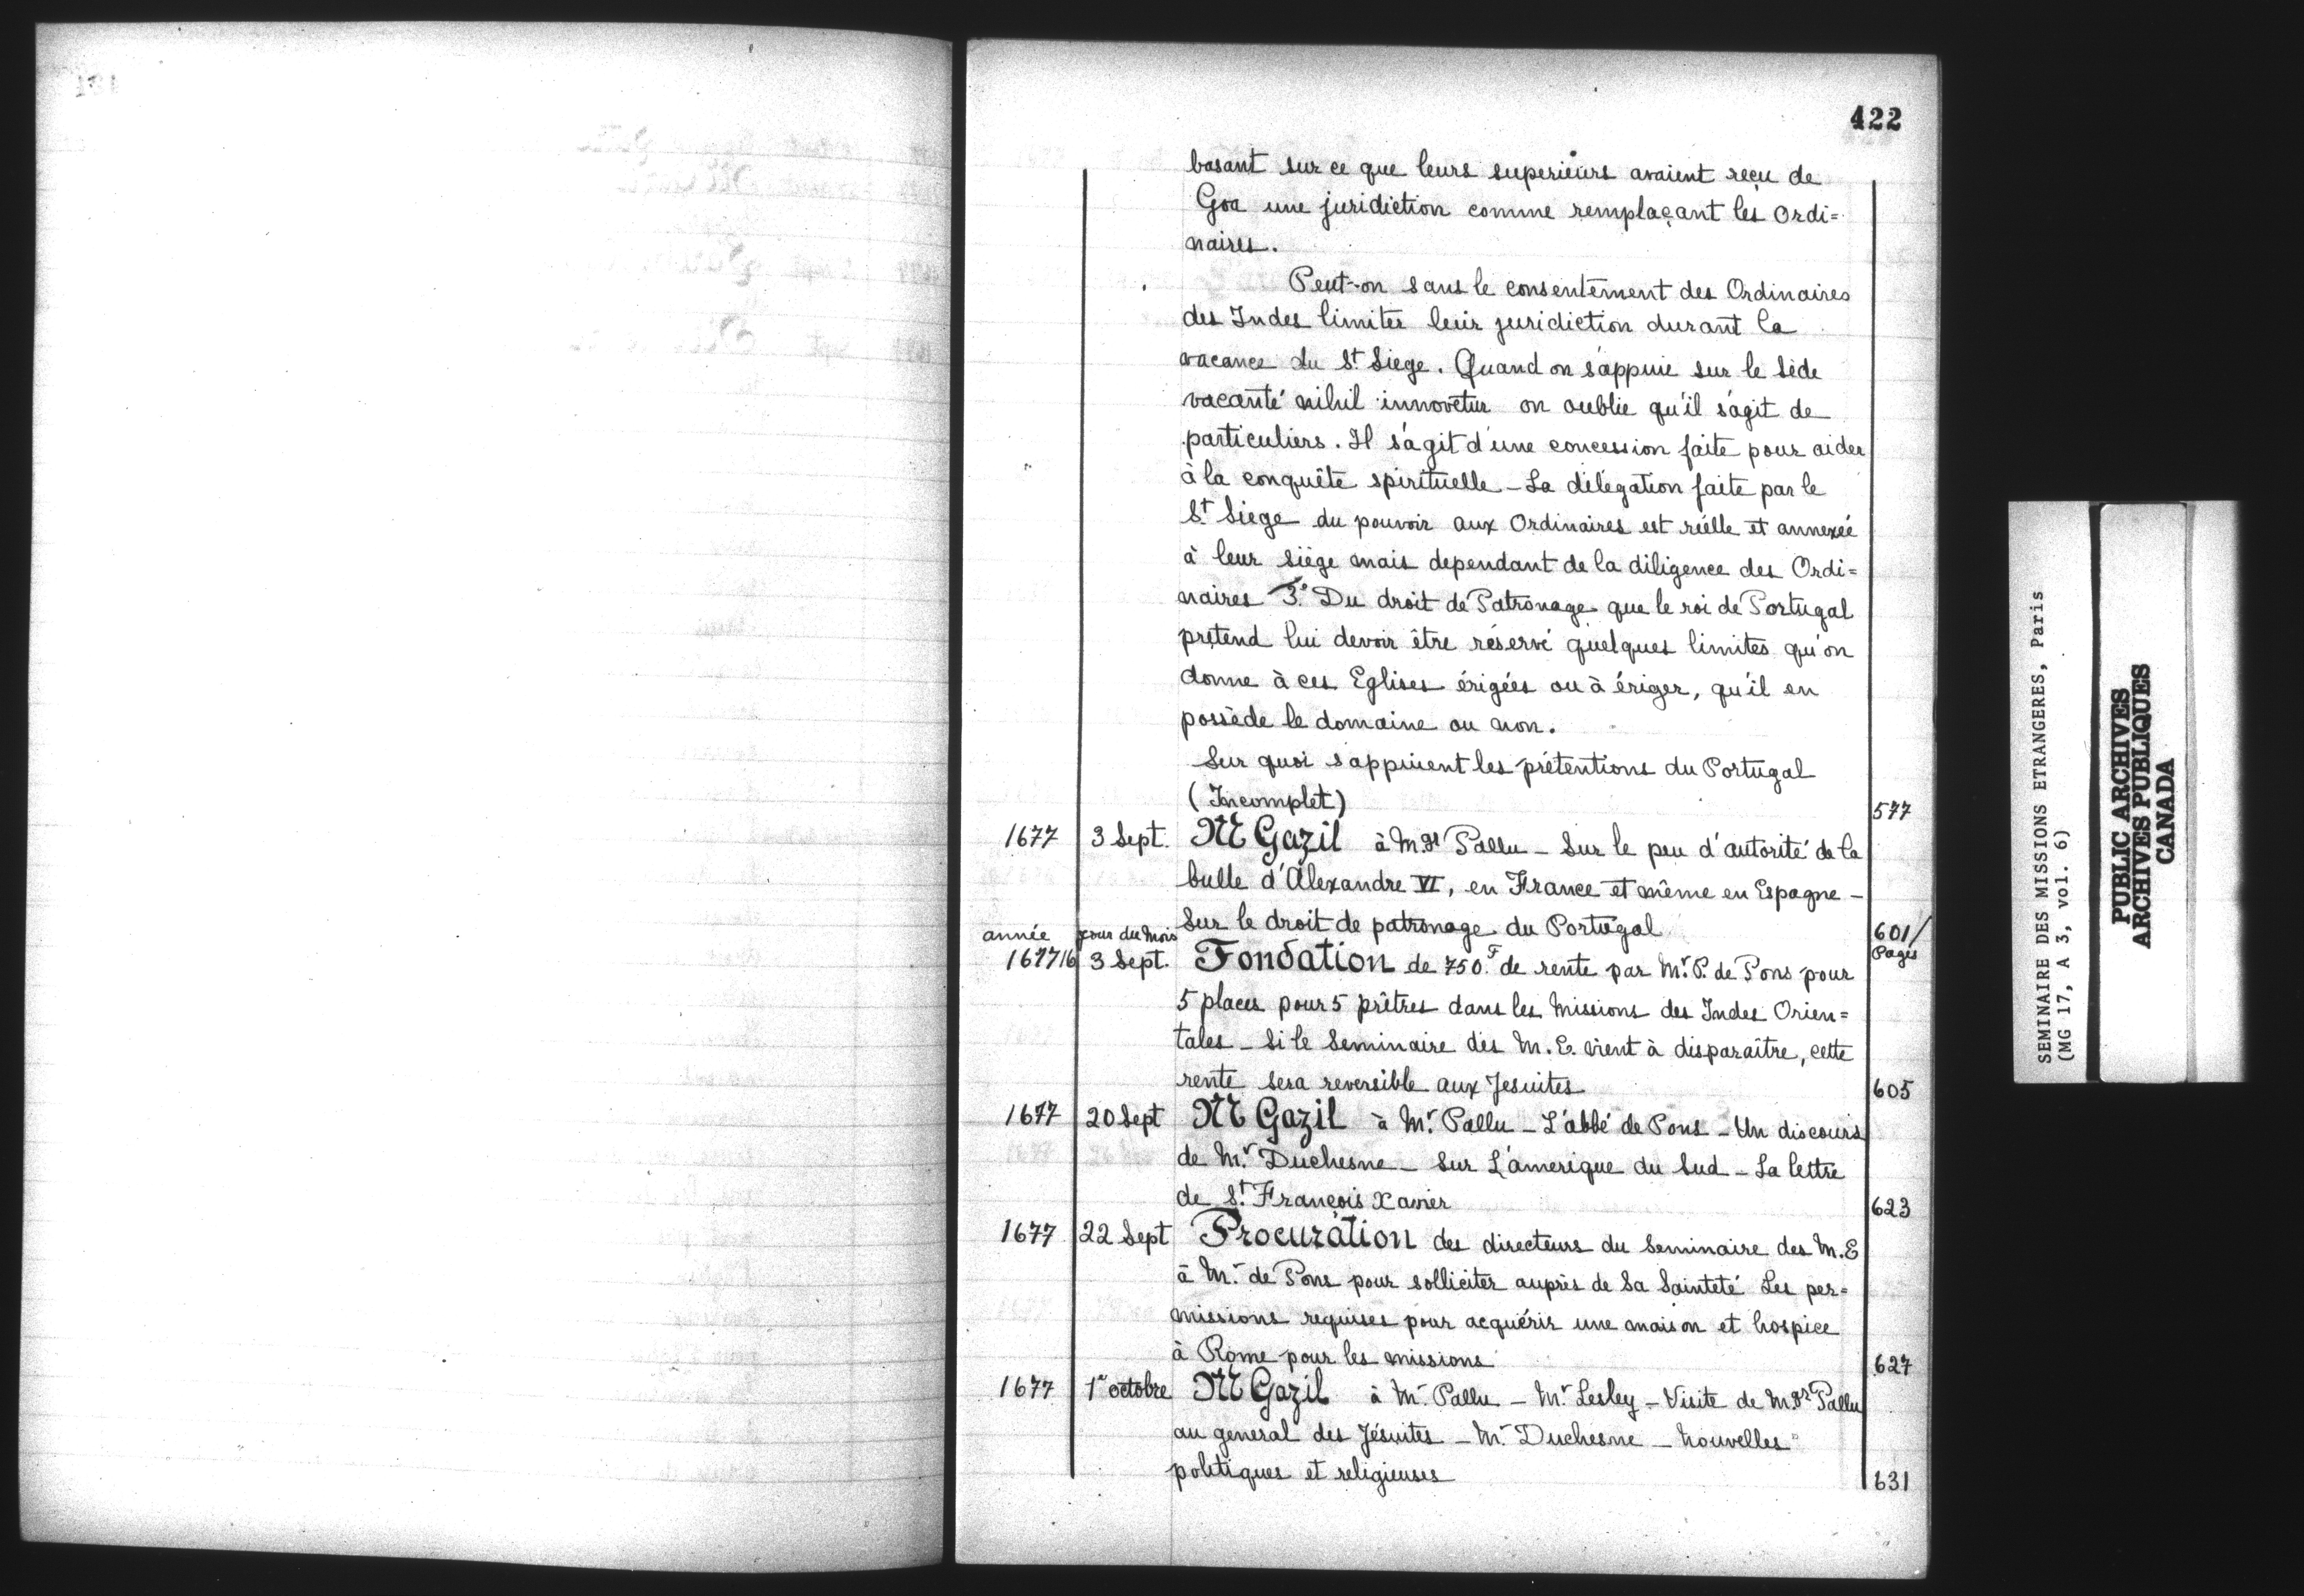 422
basant sur ce que leurs superieurs avaient reçu de
Goa une juridiction comme remplaçant les Ordi=
naires.
Peut-on sans le consentement des Ordinaires
des Indes limiter leur juridiction durant la
vacance du St Siege. Quand on s'appuie sur le Sède
vacanté nihil innovetur on oublie qu'il s'agit de
particuliers. Il s'agit d'une concession faite pour aider
à la conquête spirituelle - La délégation faite par le
St Siege du pouvoir aux Ordinaires est réelle et annexée
à leur siège mais dependant de la diligence des Ordi=
naires 3° Du droit de Patronage que le roi de Portugal
prétend lui devoir être réservé quelques limites qu'on
donne à ces Eglises érigées ou à ériger, qu'il en
possède le domaine ou non.
Sur quoi s'appuient les prétentions du Portugal
(Incomplet) 577
1677 3 Sept. Mr Gazil à M.gr Pallu - Sur le peu d'autorité de la
bulle d'Alexandre VI, en France et même en Espagne -
Sur le droit de patronage du Portugal 601/
année jour du mois Pages
1677/6 3 Sept. Fondation de 750.F de rente par Mr. P. de Pons pour
5 places pour 5 prêtres dans les Missions des Indes Orien=
tales - Si le Seminaire des M. E. vient à disparaître, cette
rente sera reversible aux Jesuites 605
1677 20 Sept Mr Gazil à Mr. Pallu - L'abbé de Pons - Un discours
de Mr. Duchesne - Sur L'amerique du Sud - La lettre
de St. François Xavier 623
1677 22 Sept Procuration des directeurs du Seminaire des M. E
à Mr. de Pons pour solliciter auprès de Sa Sainteté Les per=
missions requises pour acquérir une maison et hospice
à Rome pour les missions 627
1677 1er octobre Mr Gazil à Mr. Pallu - Mr. Lesley - Visite de M.gr Pallu
au general des Jésuites - Mr. Duchesne - Nouvelles
politiques et religieuses 631
SEMINAIRE DES MISSIONS ETRANGERES, Paris
(MG 17, A 3, vol. 6)
PUBLIC ARCHIVES
ARCHIVES PUBLIQUES
CANADA